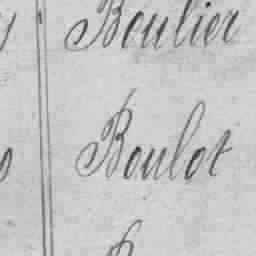 Boulier
Boulot